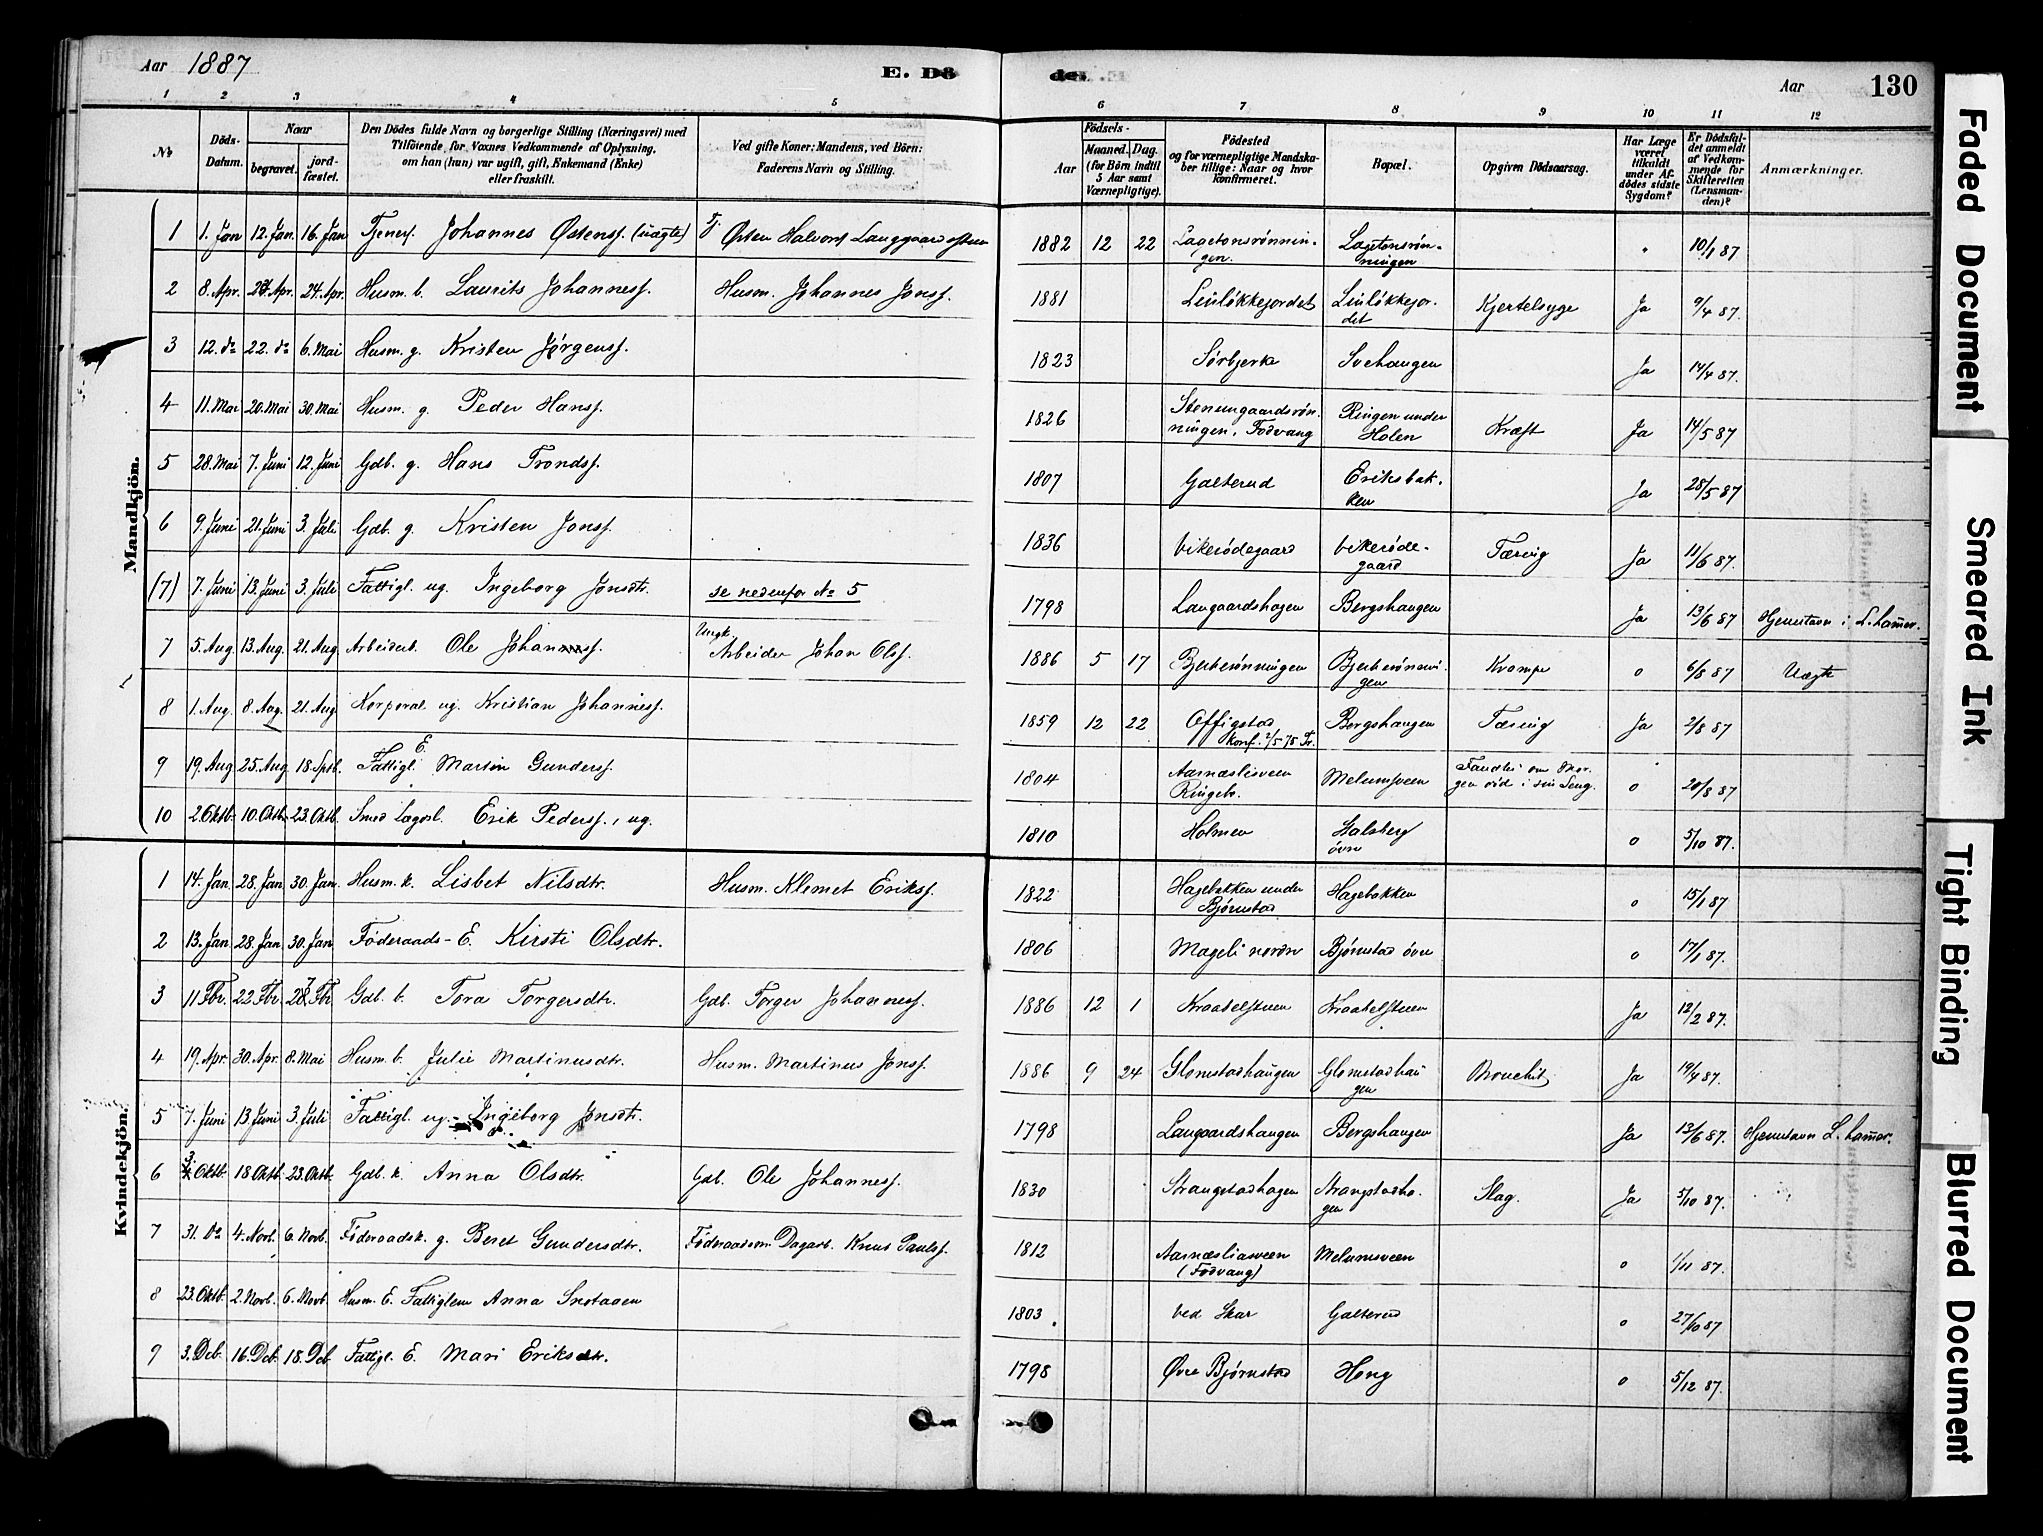 Aar 1887 E. Dö de. Aar 130
1 2 3 4 5 6 7 8 9 10 11 12
No. Döds-Datum. Naar begravet. jordfæstet. Den Dödes fulde Navn og borgerlige Stilling (Næringsvei) med Tilföiende, for Voxnes Vedkommende af Oplysning, om han (hun) var ugift, gift, Enkemand (Enke) eller fraskilt. Ved gifte Koner: Mandens, ved Börn: Faderens Navn og Stilling. Födsels- Aar Maaned. Dag. (for Börn indtil 5 Aar samt Værnepligtige). Födested og for værnepligtige Mandskaber tillige: Naar og hvor konfirmeret. Bopæl. Opgiven Dödsaarsag. Har Læge været tilkaldt under Afdödes sidste Sygdom? Er Dödsfaldet anmeldt af Vedkommende for Skifteretten (Lensmanden)? Anmærkninger.
Mandkjön.
1 1. Jan 12. Jan. 16. Jan Tjenesf. Johannes Østensf. (uægte) Østen Halvors Langgaard 1882 12 22 Lagetonsrønningen. Lagetonsrønningen 10/1 87
2 8. Apr. Apr. 24. Apr. Husm. b. Laurits Johannesf. Husm. Johannes Jonsf. 1881 Linløkkejordet Linløkkejordet Kjertelsyge Ja 9/4 87.
3 12. do 22. do 6. Mai Husm. g. Kristen Jørgensf. 1823 Sørbjerk Svehaugen Ja 14/4 87.
4 11. Mai 20. Mai 30. Mai Husm. g. Peder Hansf. 1826 Stenumgaardsrønningen, Fodvang Ringen under Holen Kræft Ja 14/5 87
5 28. Mai 7. Juni 12. Juni Gdb. g. Hans Trondsf. 1807 Galterud Eriksbakken Ja 28/5 87
6 9. Juni 21. Juni 3. Juli Gdb. g. Kristen Jonsf. 1836 Vikerødegaard Vikerødegaard Tæring Ja 11/6 87.
(7) 7. Juni 13. Juni 3. Juli Fattigl. ug. Ingeborg Jonsdtr. se nedenfor No 5 1798 Laugaardshagen Bergshaugen Ja 13/6 87 Hjemstavn i L.hamer.
7 5. Aug 13. Aug. 21. Aug Arbeiderb. Ole Johansf. Ungk. Arbeider Johan Olsf. 1886 5 17 Bjerkerønningen Bjerkerønningen Krampe o 6/8 87 Uægte
8 1. Aug. 8. Aug. 21. Aug Korporal ug. Kristian Johannesf. 1859 12 22 Offigstad konf. 2/5 75 Fr. Bergshaugen Tæring Ja 2/8 87
9 19. Aug 25. Aug 18. Sptb. Fattigl. E. Martin Gundersf. 1804 Aarnæslisveen Ringebo. Melumsveen Fandtes om Morgen død i sin Seng. o 20/8 87
10 2. Oktb. 10. Oktb. 23. Oktb. Smed Lægdsl. Erik Pedersf., ug. 1810 Holmen Galsberg øvre o 5/10 87.
Kvindekjön.
1 14. Jan. 28. Jan 30. Jan Husm. k. Lisbet Nilsdtr. Husm. Klemet Eriksf. 1822 Hagebakken under Bjørnstad Hagebakken o 15/1 87
2 13. Jan 28. Jan 30. Jan Føderaads-E. Kirsti Olsdtr. 1806 Mageli nordre Bjørnstad øvre o 17/1 87.
3 11 Fbr. 22 Fbr. 27 Fbr Gdb. b. Tora Torgersdtr. Gdb. Torger Johannesf. 1886 12 1 Kraabølstuen Kraabølstuen Ja 12/2 87.
4 19. Apr. 30. Apr. 8. Mai Husm. b. Julie Martinusdtr. Husm. Martinus Jonsf. 1886 9 24 Glomstadhaugen Glomstadhaugen Bronchit Ja 19/4 87.
5 7. Juni 13 Juni 3. Juli Fattigl. ug. Ingeborg Jonsdtr. 1798 Laugaardshaugen Bergshaugen Ja 13/6 87. Hjemstavn L.hamer.
6 3 Oktb. 18 Oktb. 23. Oktb. Gdb. k. Anna Olsdtr. Gdb. Ole Johannesf. 1830 Strangstadhagen Strangstadhagen Slag. Ja 5/10 87.
7 31. Do 4. Novb. 6. Novb. Føderaadsk. g. Beret Gundersdtr. Føderaadsm Dagarb. Knut Paulsf. 1812 Aarnæslisveen (Fodvang) Melumsveen o 1/11 87.
8 23. Oktb. 2. Novb. 6. Novb. Husm. E. Fattiglem Anna Snetagen 1803 Ved Skar Galterud o 27/10 87
9 3. Dcb. 16. Dcb. 18. Dcb Fattigl. E. Mari Eriksdtr. 1798 Øvre Bjørnstad Hong o 5/12 87.
Faded Document
Smeared Ink
Tight Binding
Blurred Document